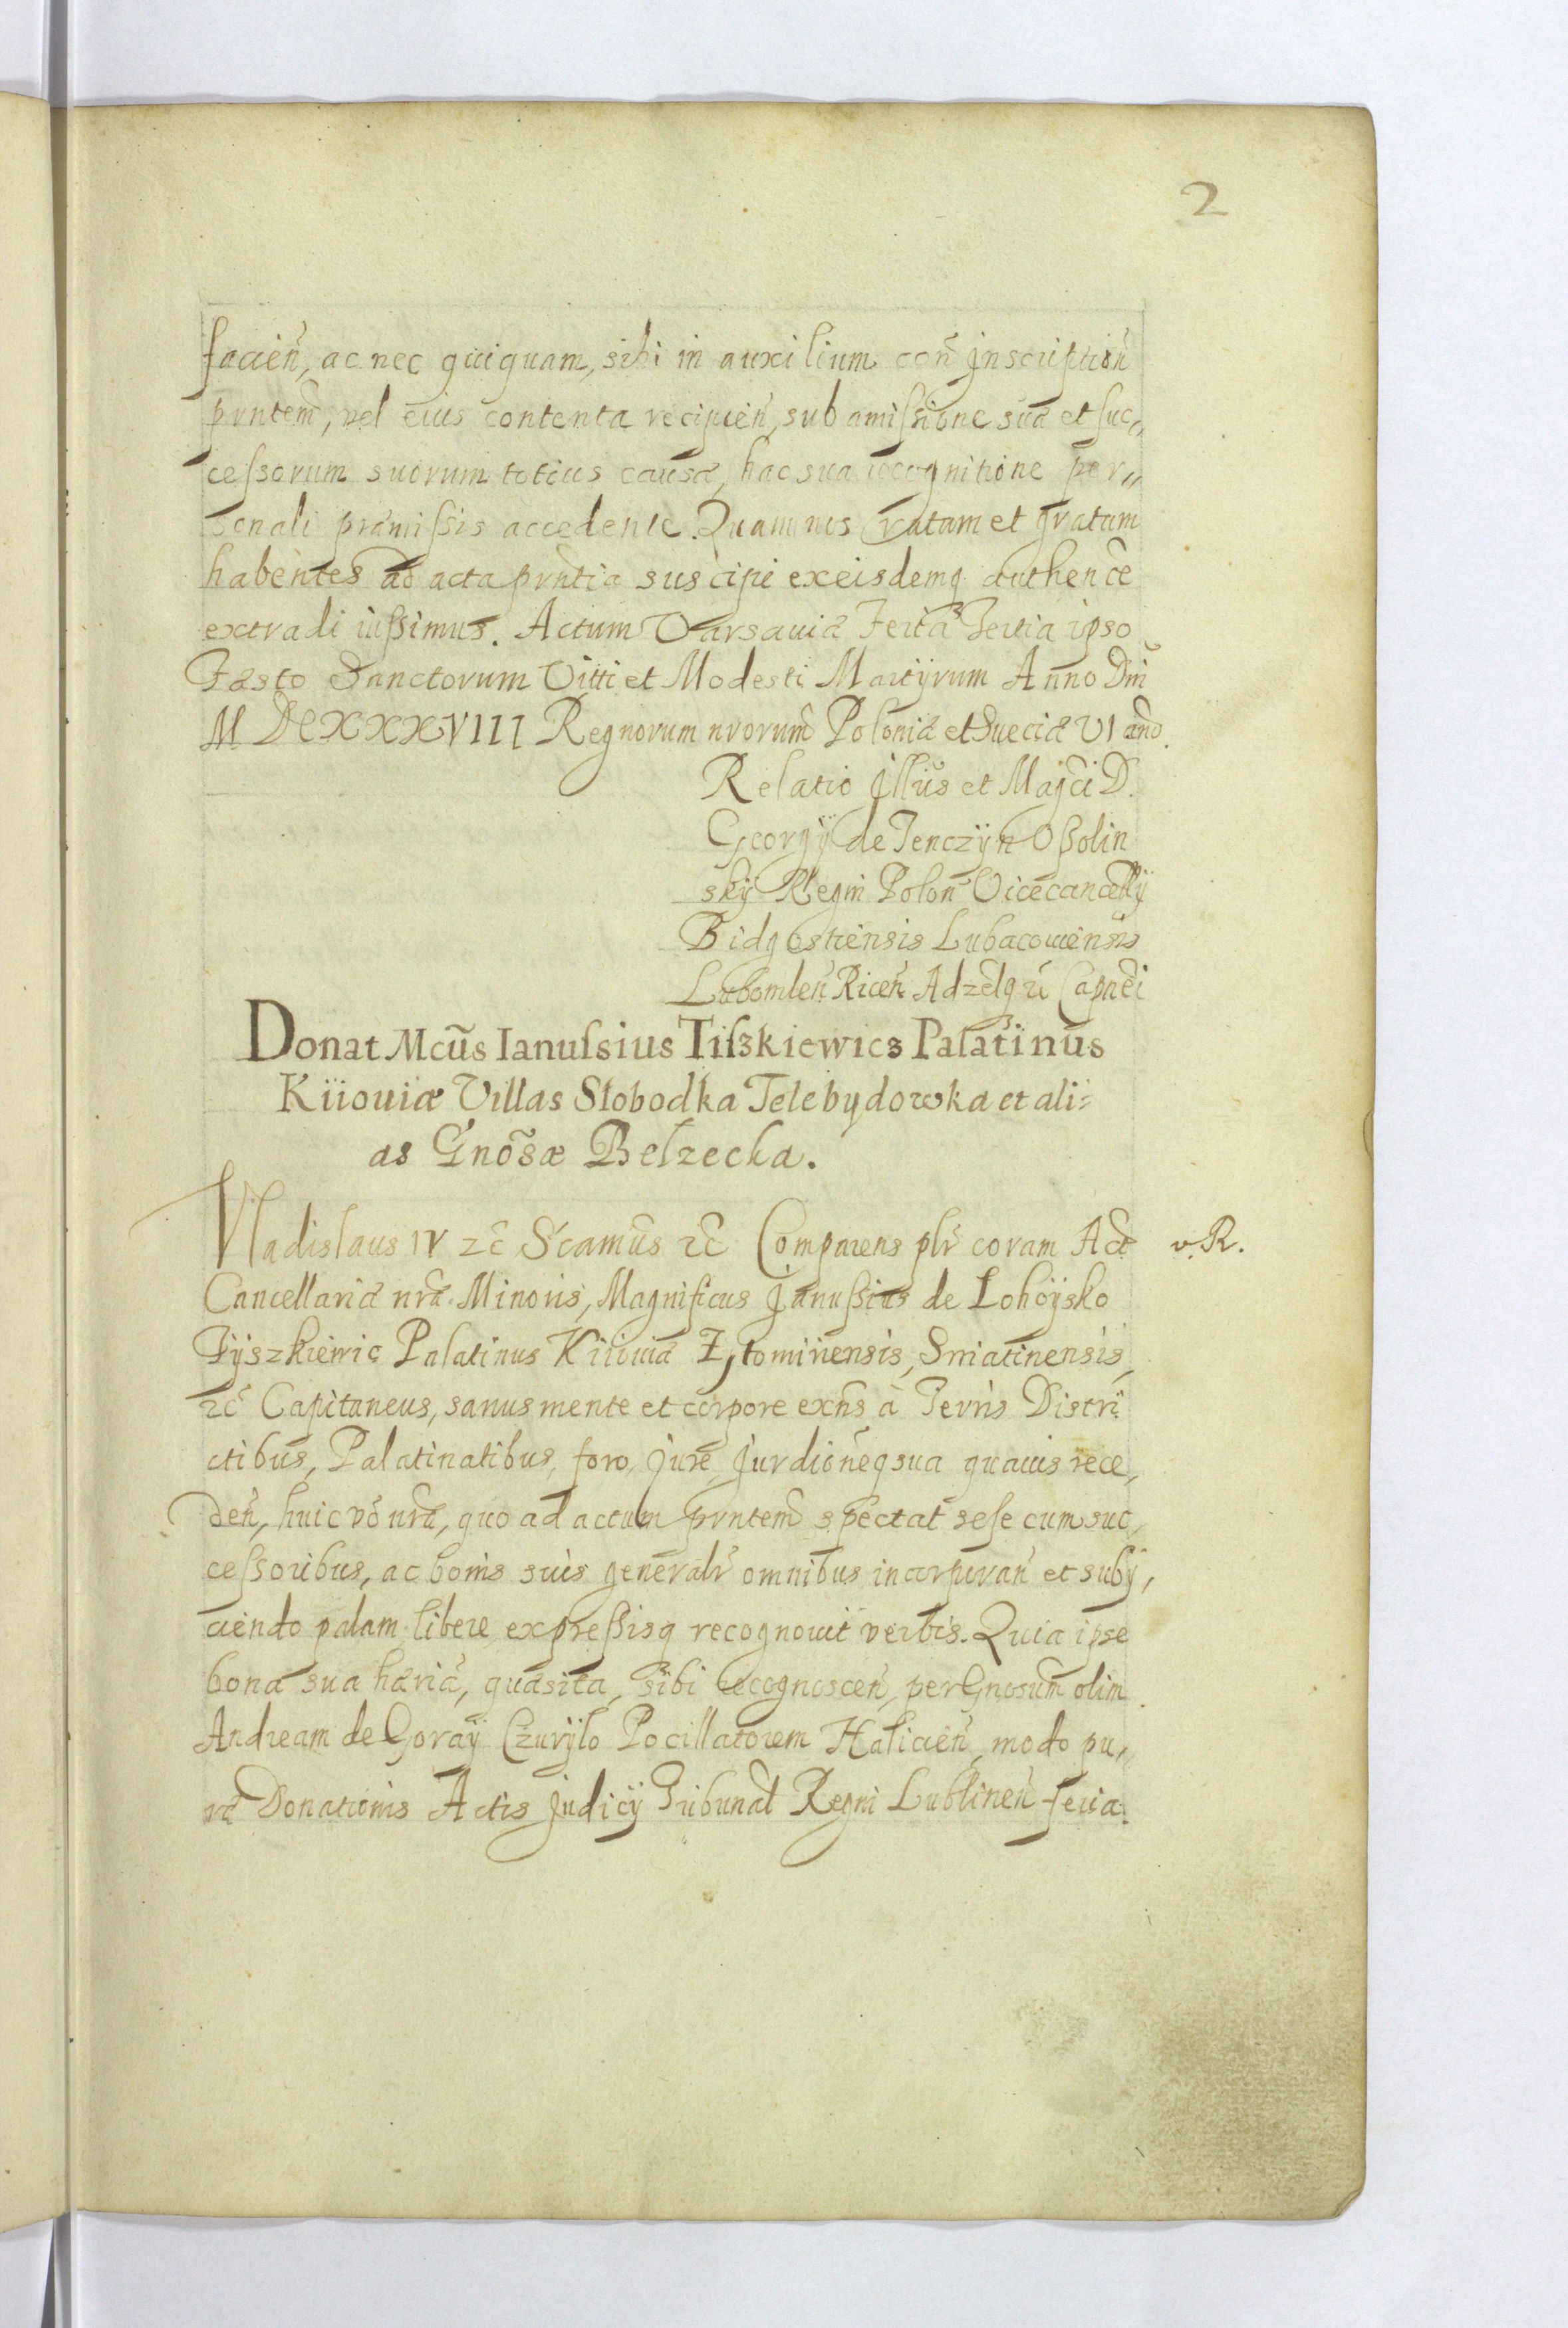 2
facień, ac nec quiquam, sibi in auxilium coñ inscriptioń
prntem̃, vel eius contenta recipień, sub amissione suæ et suc„
cessorum suorum totius causæ, hac sua recognitione per„
sonali præmissis accedente. Quam nos ratam et gratam
habentes ad acta prntia suscipi exeisdemq authence
extradi iussimus. Actum Varsaviæ Feria Tertia ipso
Festo Sanctorum Vitti et Modesti Martÿrum Anno Dni
MDCXXXVIII Regnorum nrorum Poloniæ et Sueciæ VI anō.
Relatio Jllus et Magci D.
Georgÿ de Tenczÿn Oßolin
skÿ Regni Polon Vicecancellÿ
Bidgostiensis Lubacouiensis
Lubomlen Ricen Adzelgū Capnei
Donat Mcus Ianussius Tiszkiewicz Palatinus
Kiiouiæ Villas Slobodka Telebydowka et ali=
as Gnosæ Belzecka.
Vladislaus IV zc̃ S'camus zc̃ Comparens plr coram Act
v. R.
Cancellariæ nræ Minoris, Magnificus Janußius de Lohoÿsko
Tÿszkiewic Palatinus Kiiouiæ Zytomiriensis, Sniatinensis,
zc̃ Capitaneus, sanus mente et corpore exñs à Terris Distri
ctibus, Palatinatibus, foro, Jure, Jurdioneq sua quavis rece,
deń, huic vō nræ, quo ad actum prntem spectat sese cum suc,
cessoribus, ac bonis suis generalr omnibus incorporań et subÿ,
ciendo palam libere expressisq recognouit verbis. Quia ipse
bona sua hæria, quæsita, sibi recognoscen, per Gnosum olim
Andream de Goraÿ Czurÿlo Pocillatorem Halicień, modo pu„
ræ Donationis Actis Judicÿ Tribunal Regni Lublineń feria